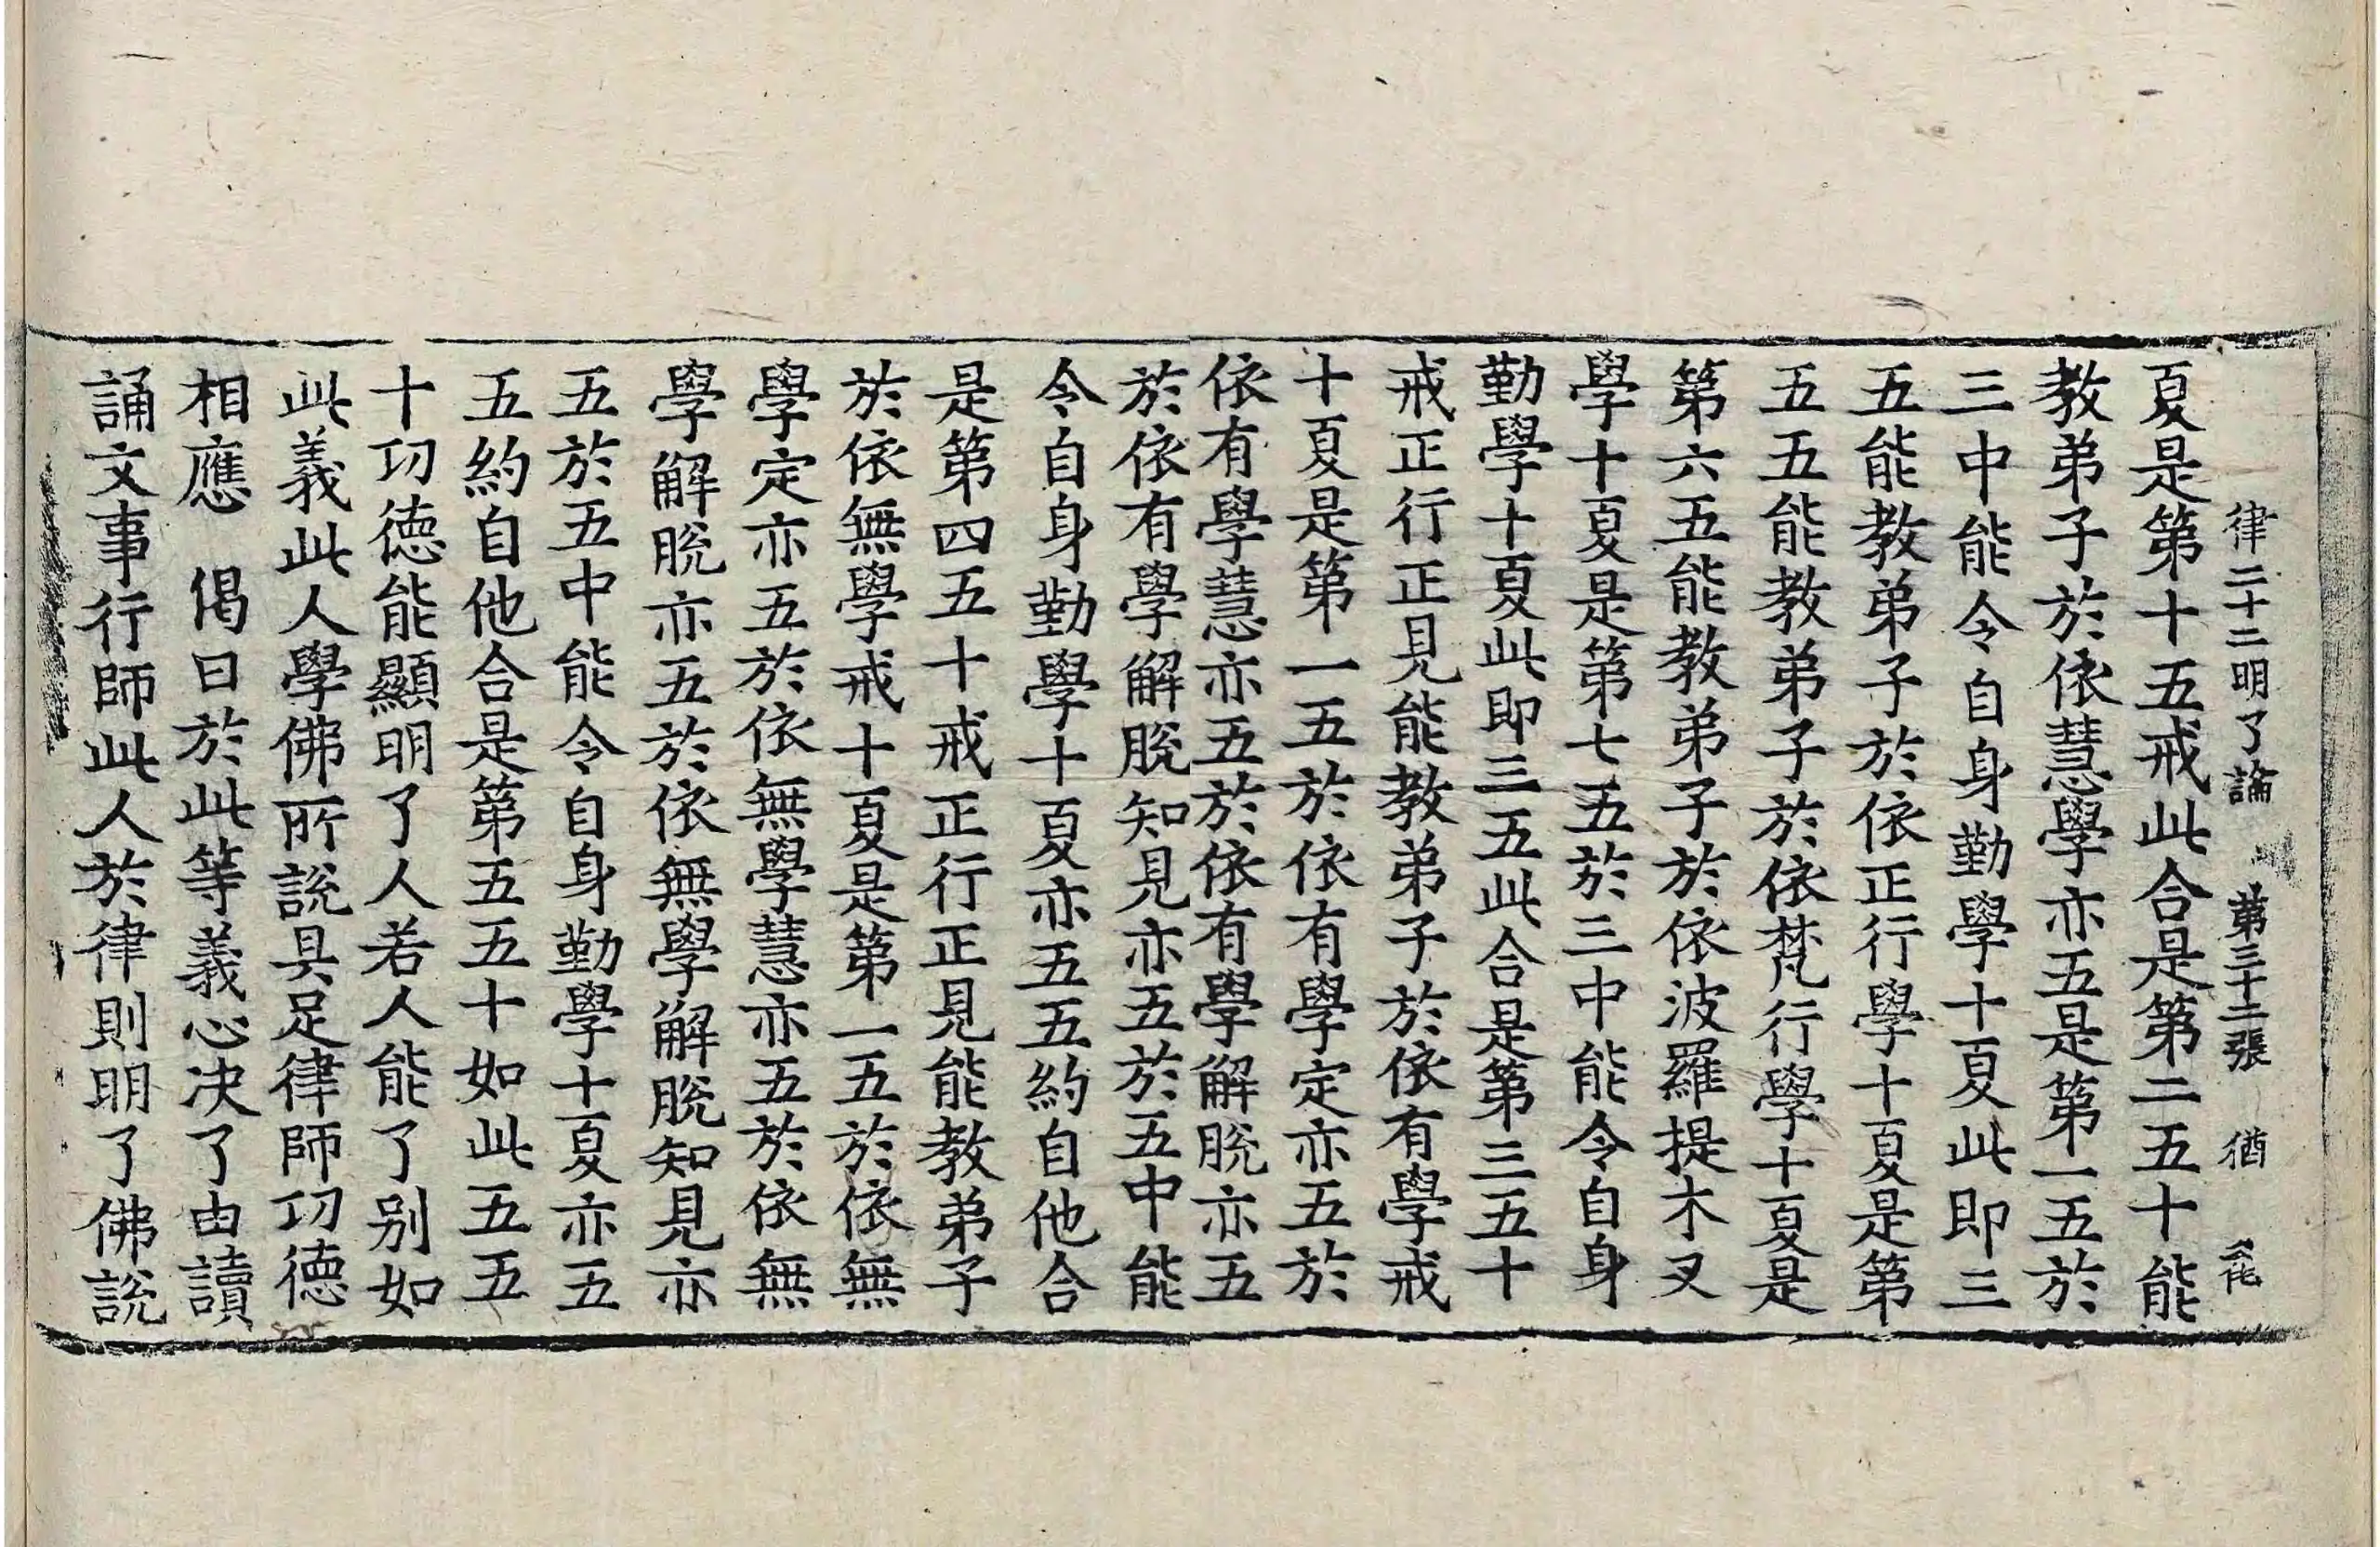 律二十二明了論　第三十二張　猶
夏是第十五戒此合是第二五十能
教弟子於依慧學亦五是第一五於
三中能令自身勤學十夏此即三
五能教弟子於依正行學十夏是第
五五能教弟子於依梵行學十夏是
第六五能教弟子於依波羅提木叉
學十夏是第七五於三中能令自身
勤學十夏此即三五此合是第三五十
戒正行正見能教弟子於依有學戒
十夏是第一五於依有學定亦五於
依有學慧亦五於依有學解脫亦五
於依有學解脫知見亦五於五中能
令自身勤學十夏亦五五約自他合
是第四五十戒正行正見能教弟子
於依無學戒十夏是第一五於依無
學定亦五於依無學慧亦五於依無
學解脫亦五於依無學解脫知見亦
五於五中能令自身勤學十夏亦五
五約自他合是第五五十如此五五
十功德能顯明了人若人能了別如
此義此人學佛所說具足律師功德
相應　偈曰於此等義心決了由讀
誦文事行師此人於律則明了佛說